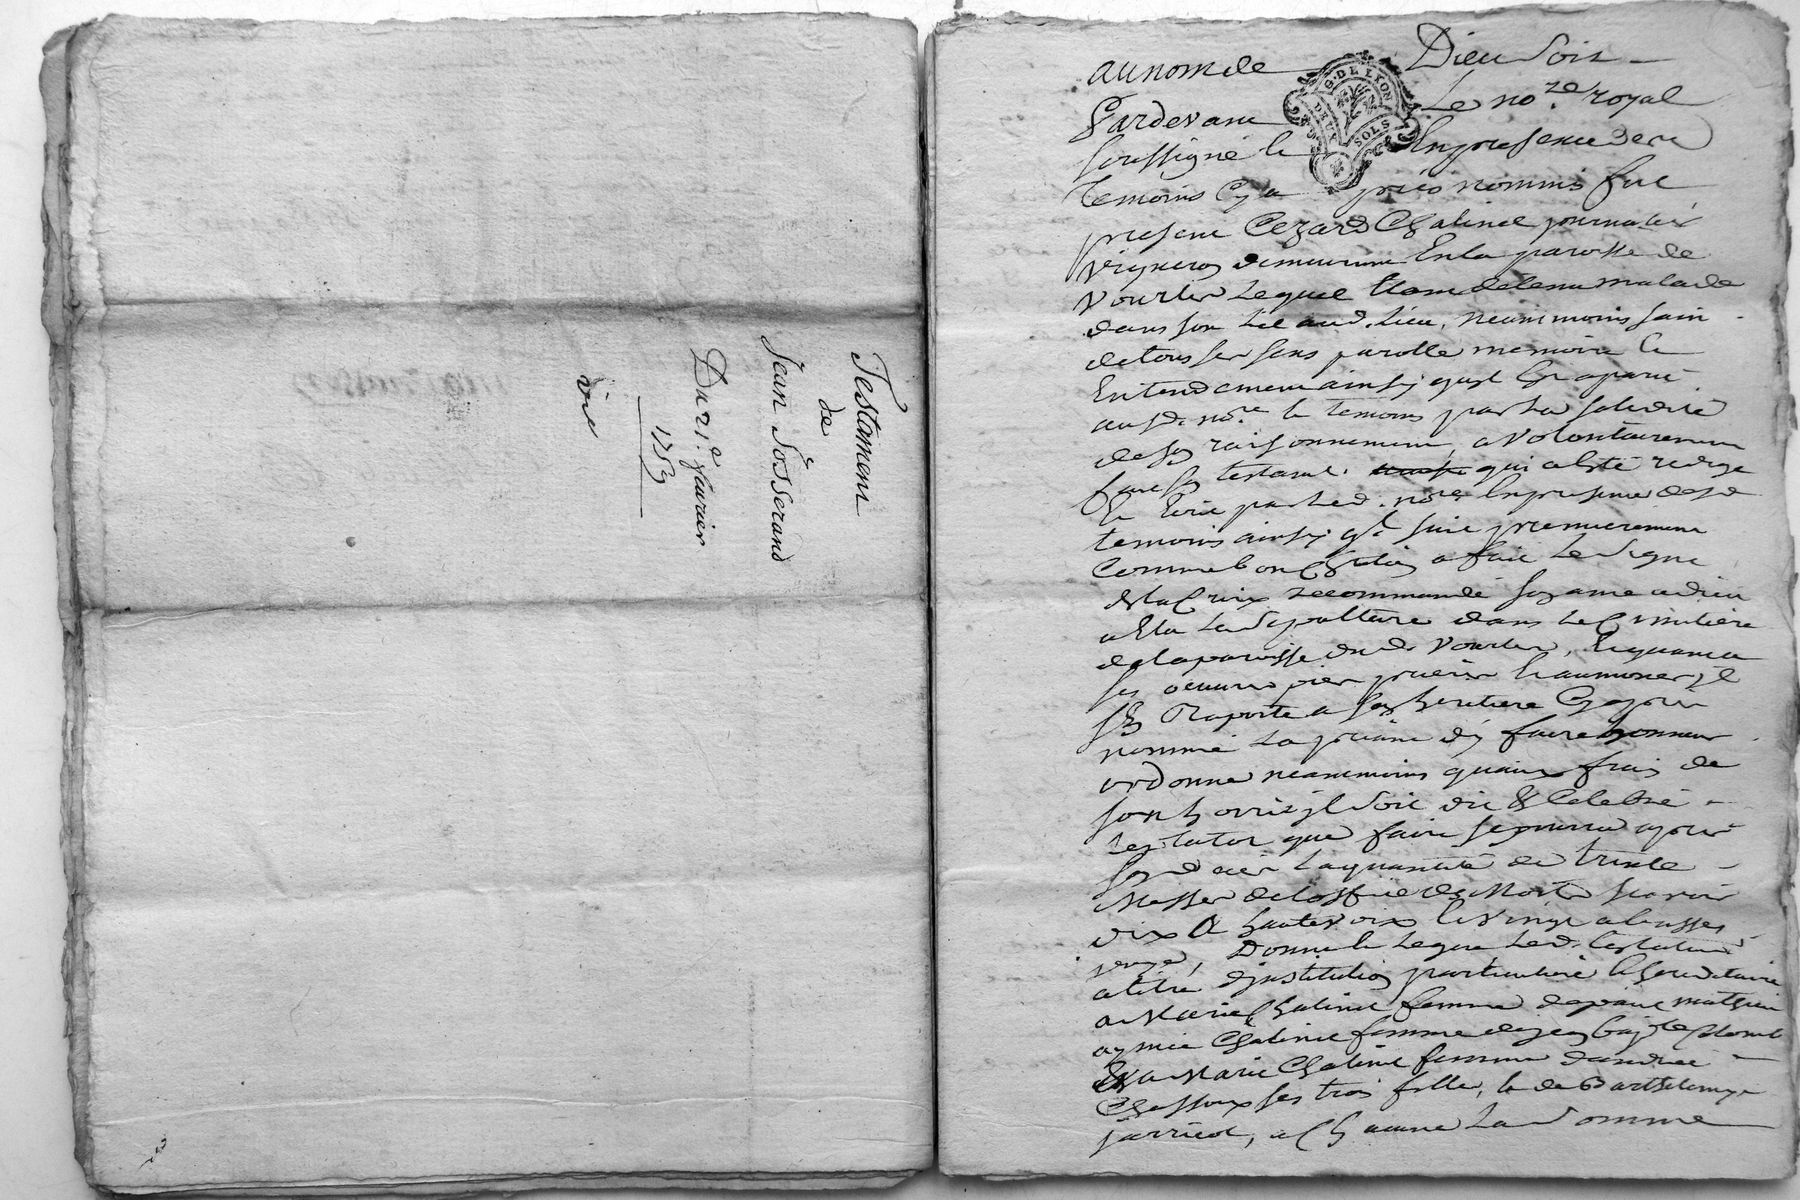 Testament
de
Jean Josserand
Du 21e. feurier
1753
au nom de Dieu Soit
G. DE LYON
DEUX SOLS
Pardevant Le no.re royal
soussigné & En presence des
temoins Cy apres nommés fut
present Cezard Chatinel journalier
vigneron demeurant En la paroisse de
Vourles Lequel Etant detenu malade
dans son Lit aud. Lieu, neantmoins sain
de tous ses sens parolle memoire &
Entendement ainsy quil Est aparu
ausd. no.re & temoins par La solidité
de son raisonnement, a volontairement
fait son testament qui a Esté redigé
& Ecrit par Led. no.re En presence desd
temoins ainsy q.l suit premierement
Comme bon Chretien a fait Le Signe
de la Croix recommandé son ame a dieu
a Elu La Sepulture dans Le Cimitiere
de la paroisse dud. Vourles, Et quant a
ses oeuvres pies prieres & aumones jl
s'En Raporte a son heritiere Cy apres
nommé La priant d'y faire honneur
ordonne neantmoins quaux frais de
son horrie jl Soit dit & Celebré
les tatot que faire se pourra apres
son deces La quantité de trente
Messes de Loffice des Morts scavoir
dix a hautes voix & vingt a basses
, Donne & Legue Led. testateur
a titre d'institution particuliere & hereditaire
a Marie Chatinel femme de pierre mathieu
aymée Chatinel femme de jean bap.te
Et a Marie Chatinel femme dandré
ses trois filles, & de Barthelemy
jarricot, a Chacune La Somme